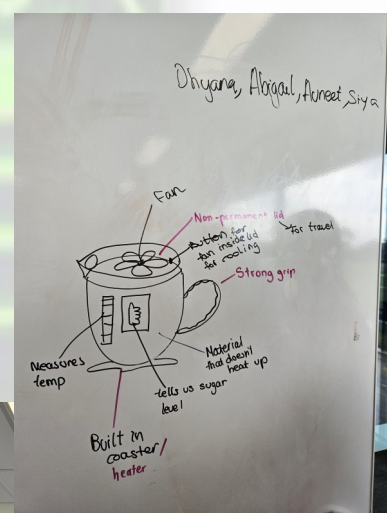 Dhyana, Abigail, Avneet, Siya
Fan
Non-permanent lid
for travel
Button for
fan inside lid
for cooling
Strong grip
Material
that doesn't
heat up
Measures
temp
tells us sugar
level
Built in
coaster/
heater